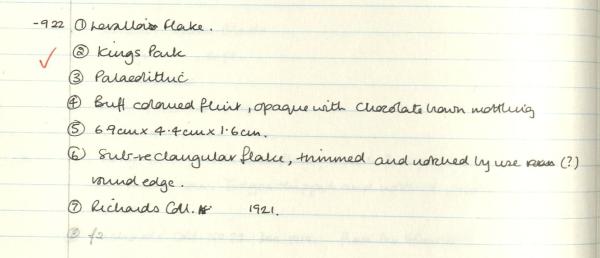 -922 ① Levallois flake.
② Kings Park
③ Palaeolithic
④ Buff coloured flint, opaque with chocolate brown mottling
⑤ 6.9cm x 4.4cm x 1.6cm.
⑥ Sub-rectangular flake, trimmed and notched by use (?)
round edge.
⑦ Richards Coll. 1921.
⑧ f2